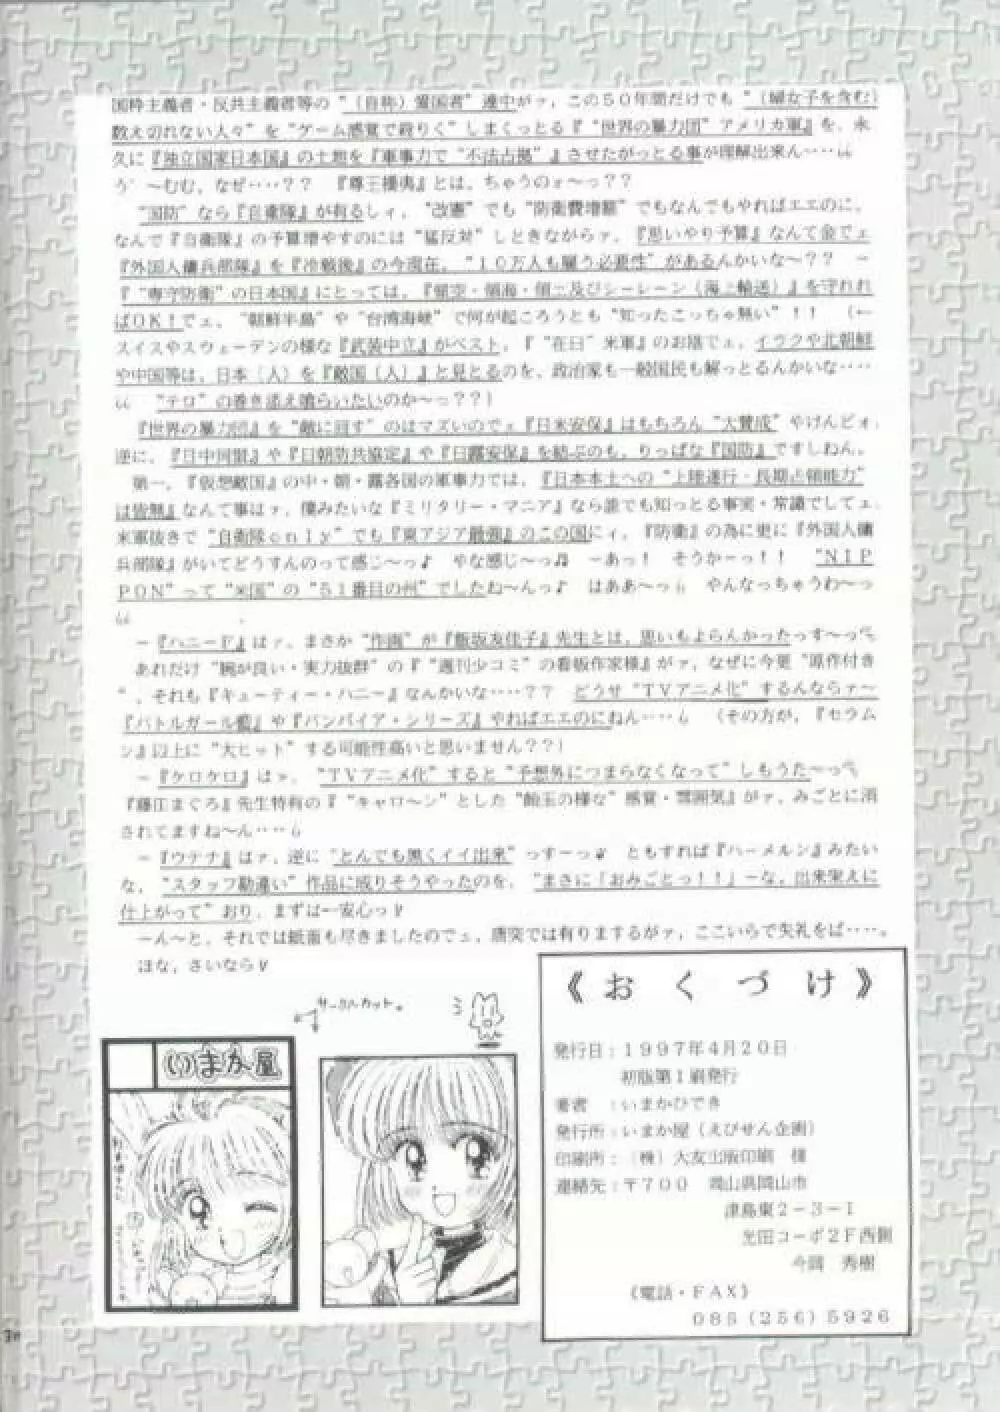 国粋主義者・反共主義者等の“(自称)愛国者”連中がァ,この50年間だけでも“(婦女子を含む)
数え切れない人々”を“ゲーム感覚で殺りく”しまくっとる『“世界の暴力団”アメリカ軍』を、永
久に『独立国家日本国』の土地を『軍事力で“不法占拠”』させたがっとる事が理解出来ん‥‥
う゛～むむ,なぜ‥‥?? 『尊王攘夷』とは,ちゃうのォ～っ??
“国防”なら『自衛隊』が有るしィ,“改憲”でも“防衛費増額”でもなんでもやればエエのに,
なんで『自衛隊』の予算増やすのには“猛反対”しときながらァ,『思いやり予算』なんて金でェ
『外国人傭兵部隊』を『冷戦後』の今現在,“10万人も雇う必要性”があるんかいな～?? －
『“専守防衛”の日本国』にとっては,『領空・領海・領土及びシーレーン(海上輸送)』を守れれ
ばOK!でェ,“朝鮮半島”や“台湾海峡”で何が起ころうとも“知ったこっちゃ無い”!! (←
スイスやスウェーデンの様な『武装中立』がベスト,『“在日”米軍』のお陰でェ,イラクや北朝鮮
や中国等は,日本(人)を『敵国(人)』と見とるのを、政治家も一般国民も解っとるんかいな‥‥
“テロ”の巻き添え喰らいたいのか～っ??)
『世界の暴力団』を“敵に回す”のはマズいのでェ『日米安保』はもちろん“大賛成”やけんどォ,
逆に,『日中同盟』や『日朝防共協定』や『日露安保』を結ぶのも,りっぱな『国防』ですしねん。
第一,『仮想敵国』の中・朝・露各国の軍事力では,『日本本土への“上陸遂行・長期占領能力”
は皆無』なんて事はァ,僕みたいな『ミリタリー・マニア』なら誰でも知っとる事実・常識でしてェ,
米軍抜きで“自衛隊only”でも『東アジア最強』のこの国にィ,『防衛』の為に更に『外国人傭
兵部隊』がいてどうすんのって感じ～っ♪ やな感じ～っ♫ －あっ! そうかーっ!! “NIP
PON”って“米国”の“51番目の州”でしたね～んっ♪ はああ～っ やんなっちゃうわ～っ
－『ハニーF』はァ,まさか“作画”が『飯坂友佳子』先生とは,思いもよらんかったっす～っ
あれだけ“腕が良い・実力抜群”の『“週刊少コミ”の看板作家様』がァ,なぜに今更“原作付き
”,それも『キューティー・ハニー』なんかいな‥‥?? どうせ“TVアニメ化”するんならァ～
『バトルガール藍』や『バンパイア・シリーズ』やればエエのにねん‥‥ (その方が,『セラム
ン』以上に“大ヒット”する可能性高いと思いません??)
－『ケロケロ』はァ,“TVアニメ化”すると“予想外につまらなくなって”しもうた～っ
『藤江まぐろ』先生特有の『“キャロ～ン”とした“飴玉の様な”感覚・雰囲気』がァ,みごとに消
されてますね～ん‥‥
－『ウテナ』はァ,逆に“とんでも無くイイ出来”っすーっ♥ ともすれば『ハーメルン』みたい
な,“スタッフ勘違い”作品に成りそうやったのを,“まさに「おみごとっ!!」－な,出来栄えに
仕上がって”おり,まずは一安心っ♥
－ん～と,それでは紙面も尽きましたのでェ,唐突では有りまするがァ,ここいらで失礼をば‥‥。
ほな,さいなら♥
サークルカット。
いまか屋
《おくづけ》
発行日:1997年4月20日
初版第1刷発行
著者 :いまかひでき
発行所:いまか屋(えびせん企画)
印刷所:(株)大友出版印刷 様
連絡先:〒700 岡山県岡山市
津島東2－3－1
光田コーポ2F西側
今岡 秀樹
《電話・FAX》
086(256)5926